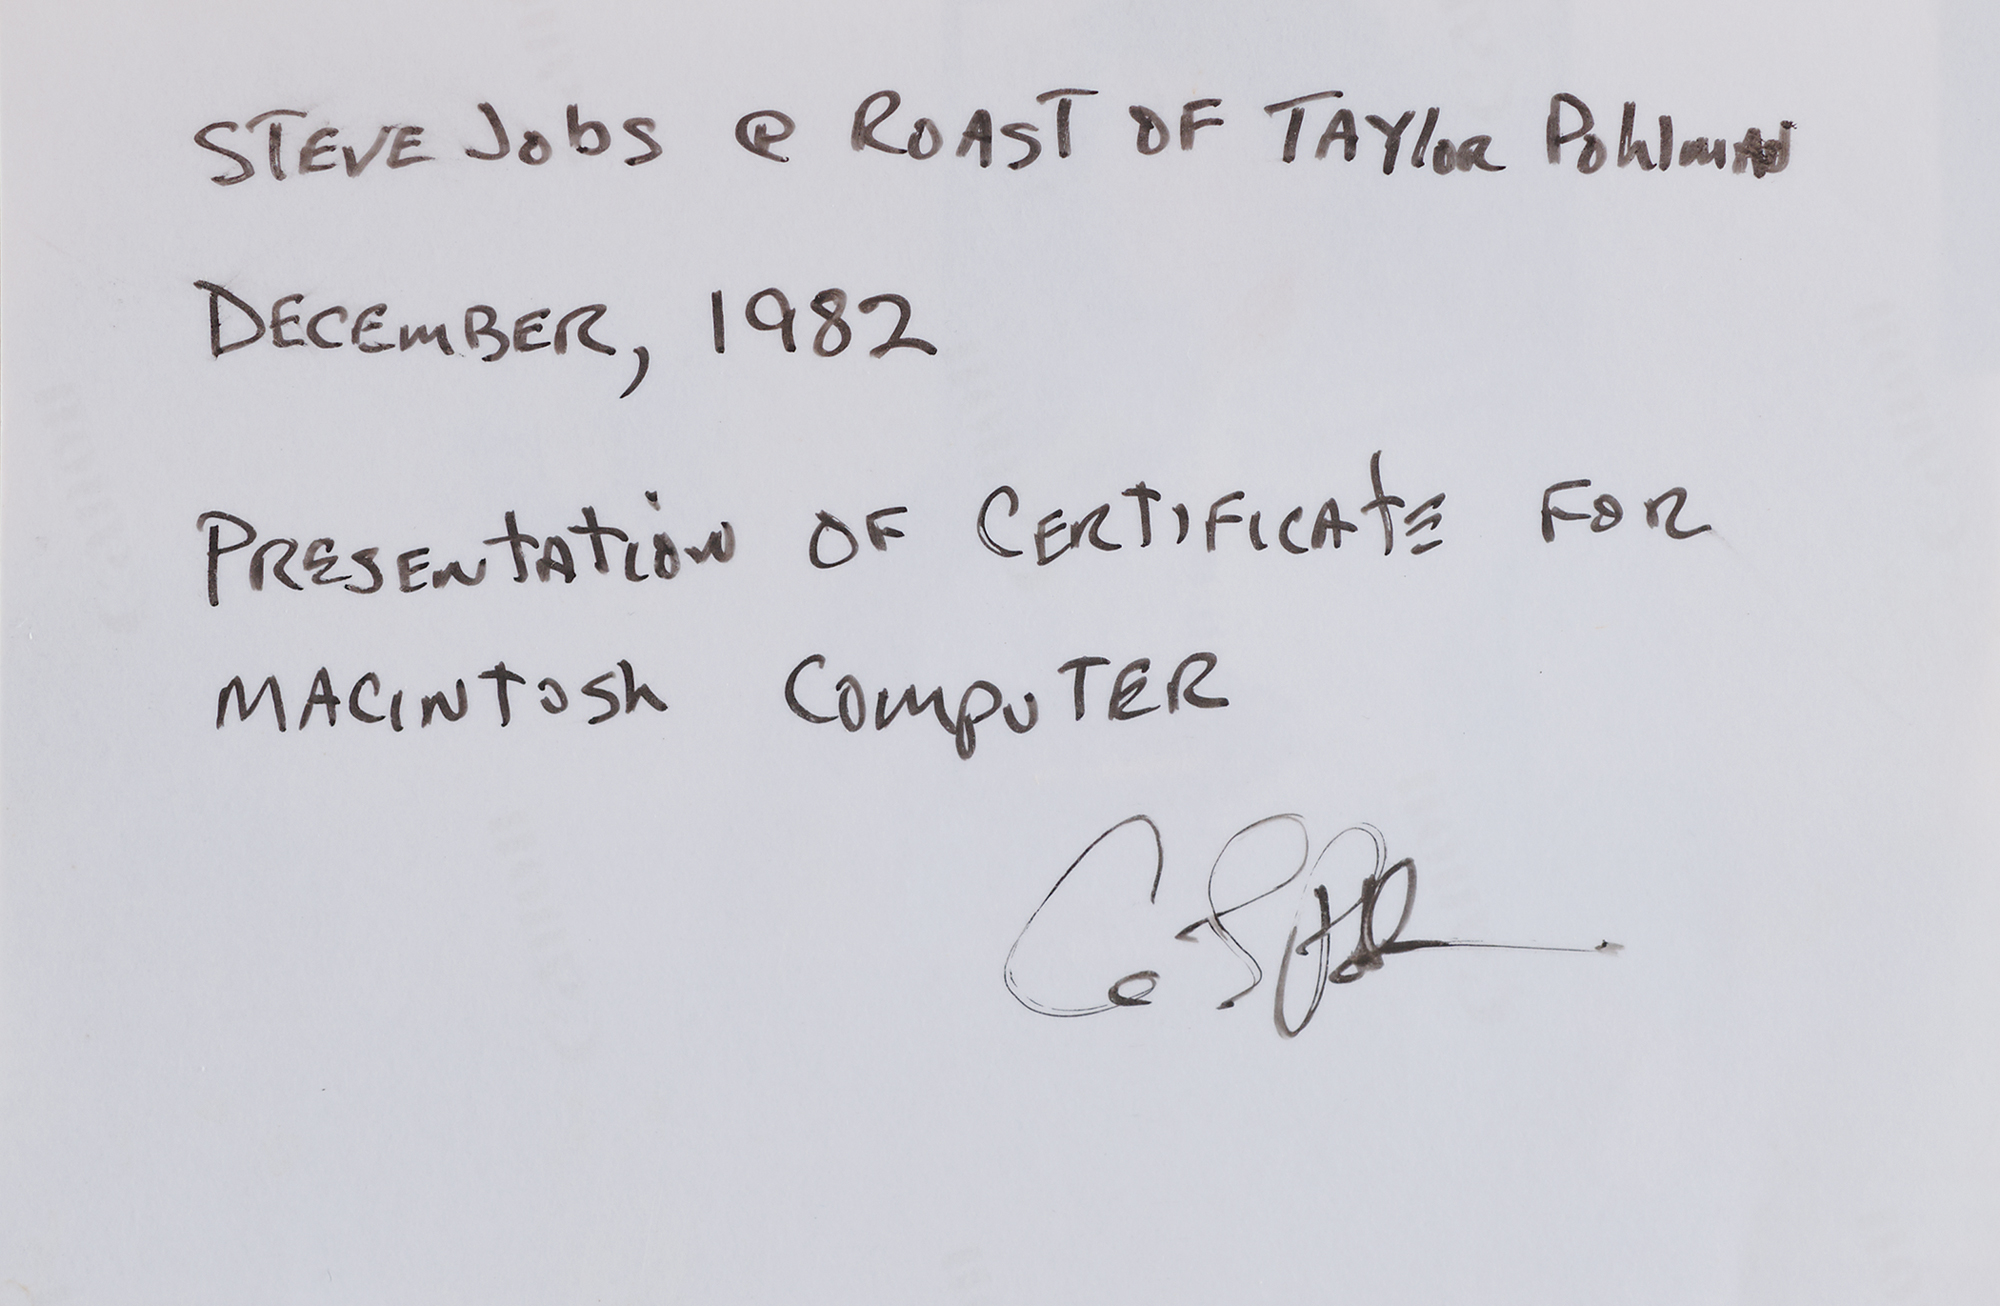 STEVE Jobs @ ROAST OF TAYlor Pohlman
DECEMBER, 1982
PRESENTATION OF CERTIFICATE FOR
MACINTOSH COMPUTER